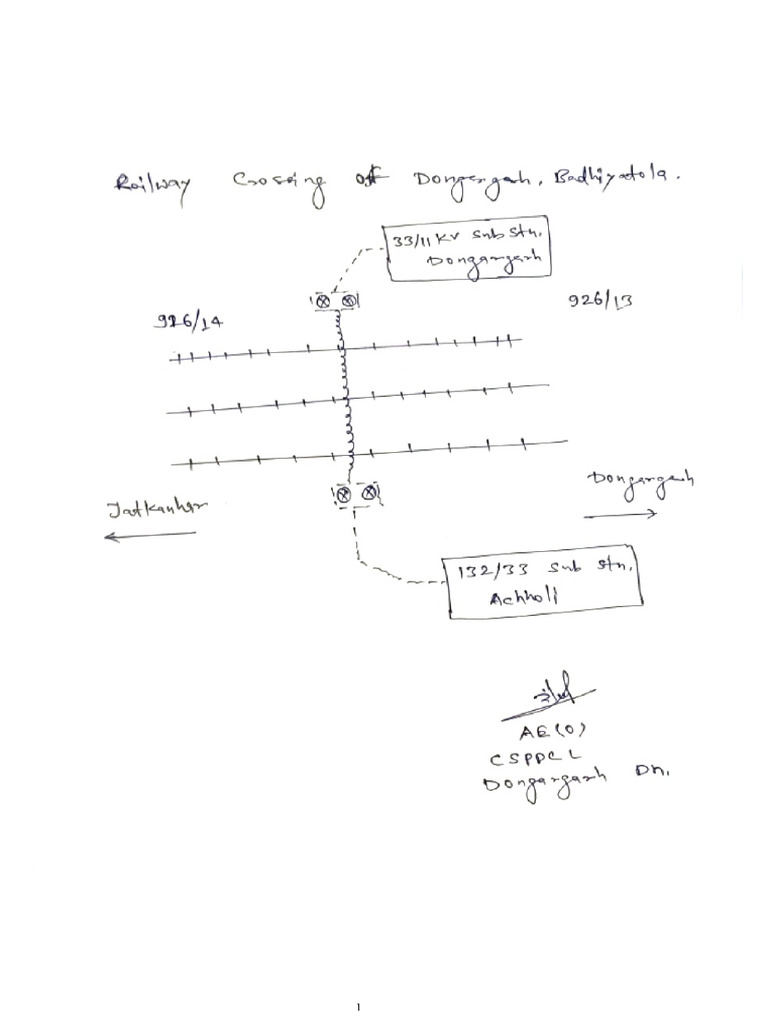 Railway Crossing of Dongergarh, Badhiyatola.
33/11 KV Sub Stn.
Dongargarh
926/14
926/13
Jatkanhar
Dongargarh
132/33 Sub Stn.
Achholi
AE(O)
CSPDCL
Dongargarh Dn.
1